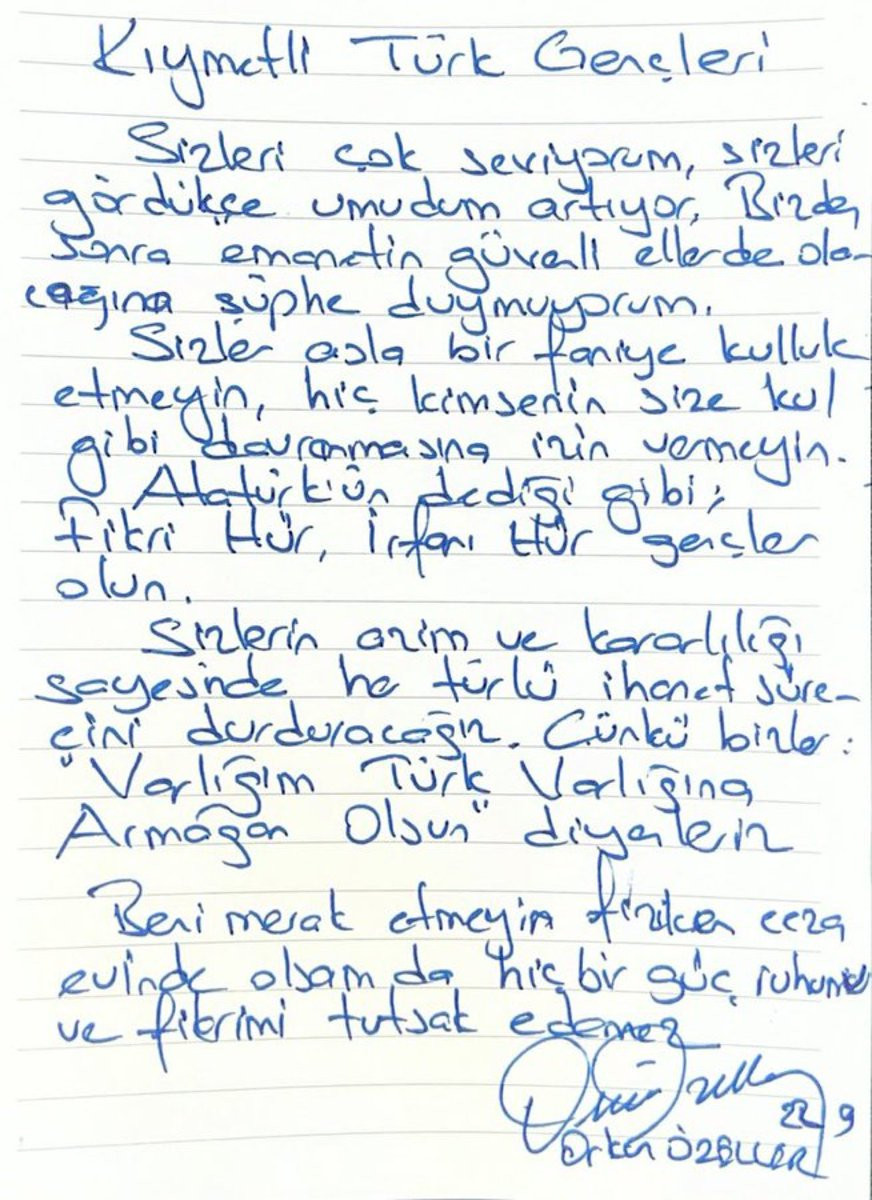 Kıymetli Türk Gençleri
Sizleri çok seviyorum, sizleri
gördükçe umudum artıyor. Bizden
sonra emanetin güvenli ellerde ola-
cağına şüphe duymuyorum.
Sizler asla bir faniye kulluk
etmeyin, hiç kimsenin size kul
gibi davranmasına izin vermeyin.
Atatürk'ün dediği gibi;
Fikri Hür, İrfanı Hür gençler
olun.
Sizlerin azim ve kararlılığı
sayesinde her türlü ihanet süre-
çini durduracağız. Çünkü bizler:
"Varlığım Türk Varlığına
Armağan Olsun" diyenleriz
Beni merak etmeyin fiziken ceza
evinde olsam da hiç bir güç ruhumu
ve fikrimi tutsak edemez
22 9
Orkun ÖZELLER